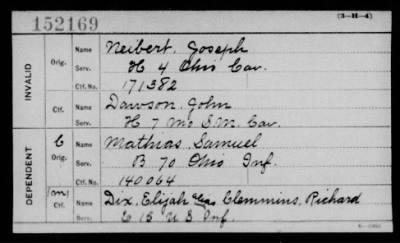 152169
(3-H-4)
INVALID
Orig.
Name Neibert, Joseph
Serv. H 4 Ohio Cav.
Ctf. No. 171382
Ctf.
Name Dawson, John
Serv. H 7 Mo S.M. Cav.
DEPENDENT
C
Orig.
Name Mathias Samuel
Serv. B 70 Ohio Inf.
Ctf. No. 140064
(m)
Ctf.
Name Dix, Elijah Clemmins, Richard
Serv. E 15 U S Inf